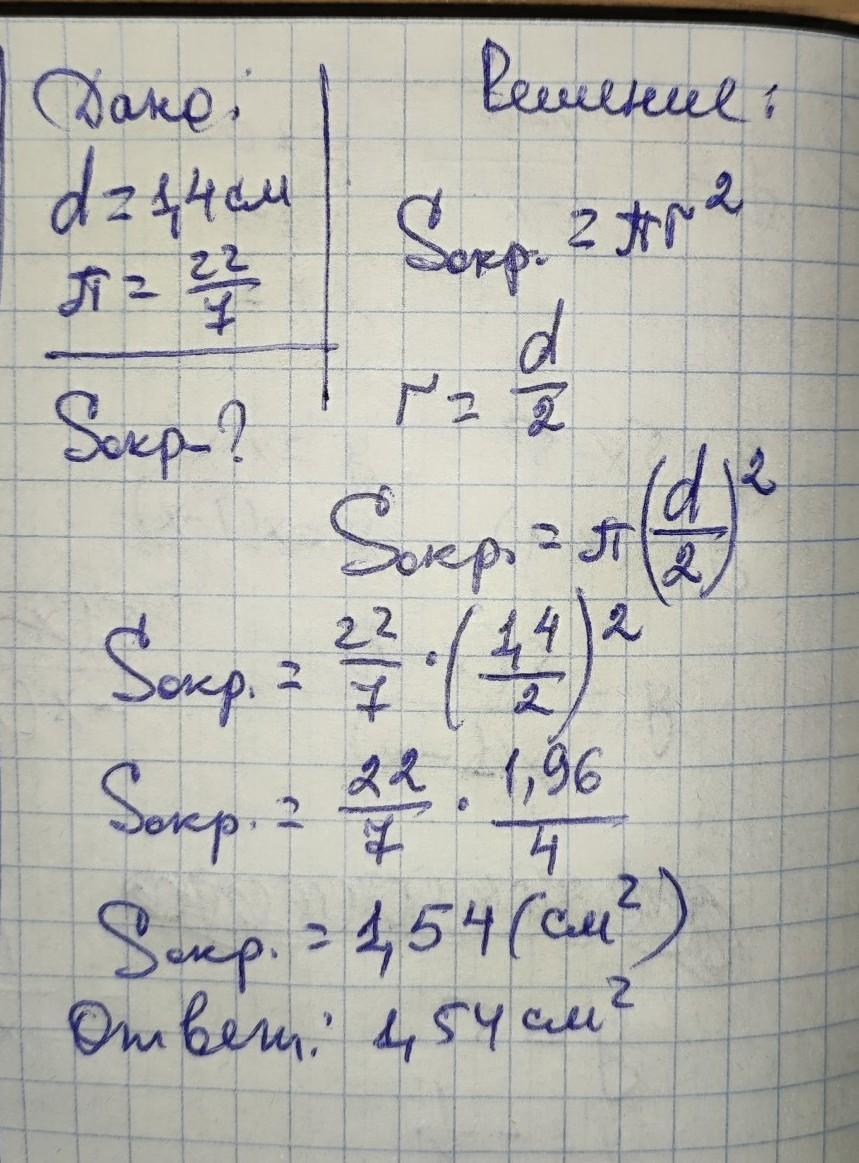 Дано:
d = 1,4 см
π = 22/7
Sокр-?
Решение:
Sокр. = πr²
r = d/2
Sокр. = π(d/2)²
Sокр. = 22/7 · (1,4/2)²
Sокр. = 22/7 · 1,96/4
Sокр. = 1,54 (см²)
Ответ: 1,54 см²